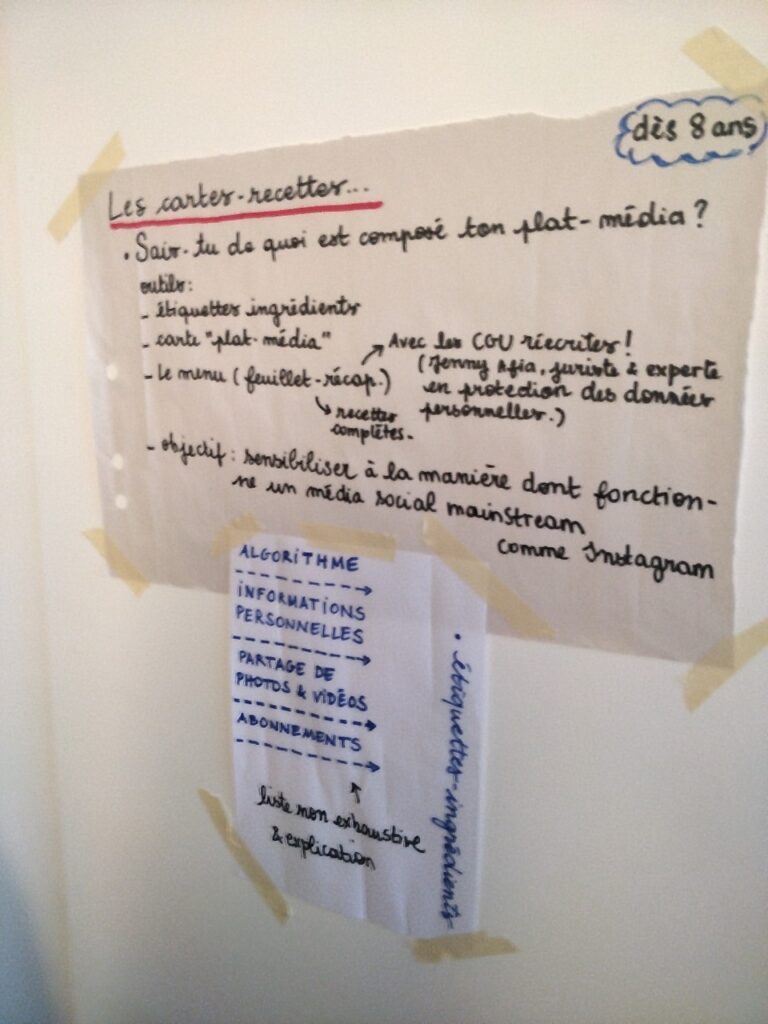 dès 8 ans
Les cartes-recettes...
• Sais-tu de quoi est composé ton plat-média ?
outils :
- étiquettes ingrédients
- carte "plat-média"
- Le menu ( feuillet-récap.)
Avec les CGU réecrites !
(Jenny Afia, juriste & experte
en protection des données
personnelles.)
recettes
complètes.
- objectif : sensibiliser à la manière dont fonction-
ne un média social mainstream
comme Instagram
ALGORITHME
INFORMATIONS
PERSONNELLES
PARTAGE DE
PHOTOS & VIDÉOS
ABONNEMENTS
liste non exhaustive
& explication
• étiquettes-ingrédients-